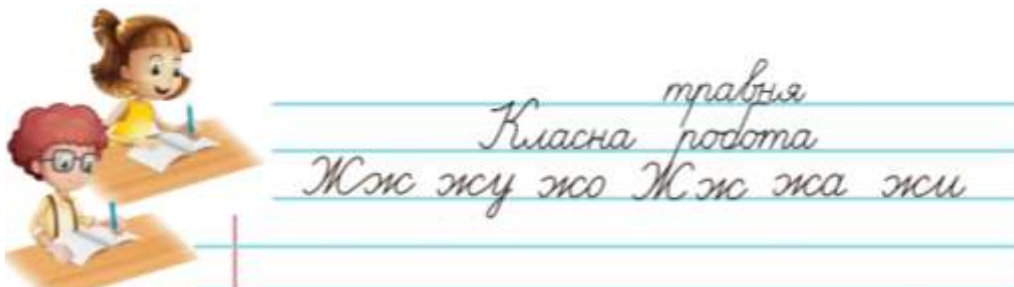 травня
Класна робота
Жж жу жо Жж жа жи